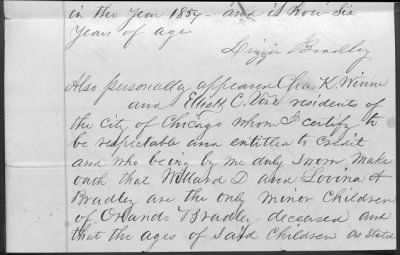 in the year 1857 - and is now six
years of age
Lizzie Bradley
Also personally appeared Chas. K. Winne
and Elliott C. residents of
the city of Chicago whom I certify to
be respectable and entitled to credit
and who being by me duly sworn make
oath that Willard D and Lovina A
Bradley are the only minor children
of Orlando Bradley deceased and
that the ages of said children as stated